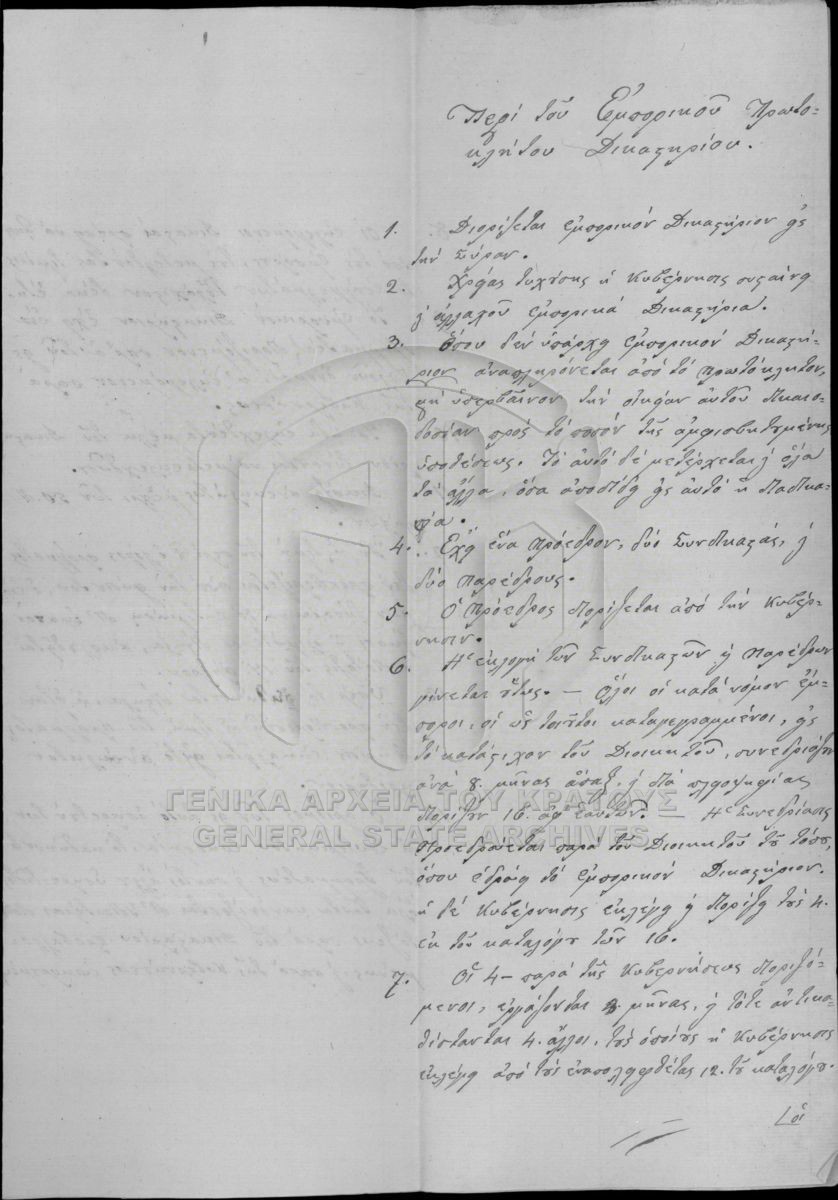 Περί τοῦ Ἐμπορικοῦ Πρωτο-
κλήτου Δικαστηρίου.
1. Διορίζεται ἐμπορικόν Δικαστήριον εἰς
τήν Σύραν.
2. Χρείας τυχούσης ἡ Κυβέρνησις συσταίνει
καί ἀλλαχοῦ ἐμπορικά Δικαστήρια.
3. Ὅπου δέν ὑπάρχει ἐμπορικόν Δικαστή-
ριον ἀναπληρόνεται ἀπό τό πρωτόκλητον,
μή ὑπερβαῖνον τήν οἰκείαν αὐτοῦ δικαιο-
δοσίαν πρός τό ποσόν τῆς ἀμφισβητουμένης
ὑποθέσεως. Τό αὐτό δέ μετέρχεται καί ὅλα
τά ἄλλα, ὅσα ἀποδίδει εἰς αὐτό ἡ Διαδικα-
σία.
4. Ἔχει ἕνα πρόεδρον, δύο Συνδικαστάς, καί
δύο παρέδρους.
5. Ὁ Πρόεδρος διορίζεται ἀπό τήν Κυβέρ-
νησιν.
6. Ἡ ἐκλογή τῶν Συνδικαστῶν καί παρέδρων
γίνεται οὕτως. — Ὅλοι οἱ κατά νόμον ἔμ-
ποροι, οἱ ὡς τοιοῦτοι καταγεγραμμένοι, εἰς
τό κατάστιχον τοῦ Διοικητοῦ, συνεδριάζουν
ἀνά 8. μῆνας ἅπαξ, καί διά πλειοψηφίας
διορίζουν 16. ἀφ' ἑαυτῶν. — Ἡ Συνεδρίασις
προεδρεύεται παρά τοῦ Διοικητοῦ τοῦ τόπου,
ὅπου ἑδρεύει τό ἐμπορικόν Δικαστήριον.
ἡ δέ Κυβέρνησις ἐκλέγει καί διορίζει τούς 4.
ἐκ τοῦ καταλόγου τῶν 16.
7. Οἱ 4 — παρά τῆς Κυβερνήσεως διοριζό-
μενοι, ἐργάζονται μῆνας, καί τότε ἀντικα-
θίστανται 4. ἄλλοι, τούς ὁποίους ἡ Κυβέρνησις
ἐκλέγει ἀπό τούς ἐναπολειφθέντας 12. τοῦ καταλόγου.
οἱ
ΓΕΝΙΚΑ ΑΡΧΕΙΑ ΤΟΥ ΚΡΑΤΟΥΣ
GENERAL STATE ARCHIVES